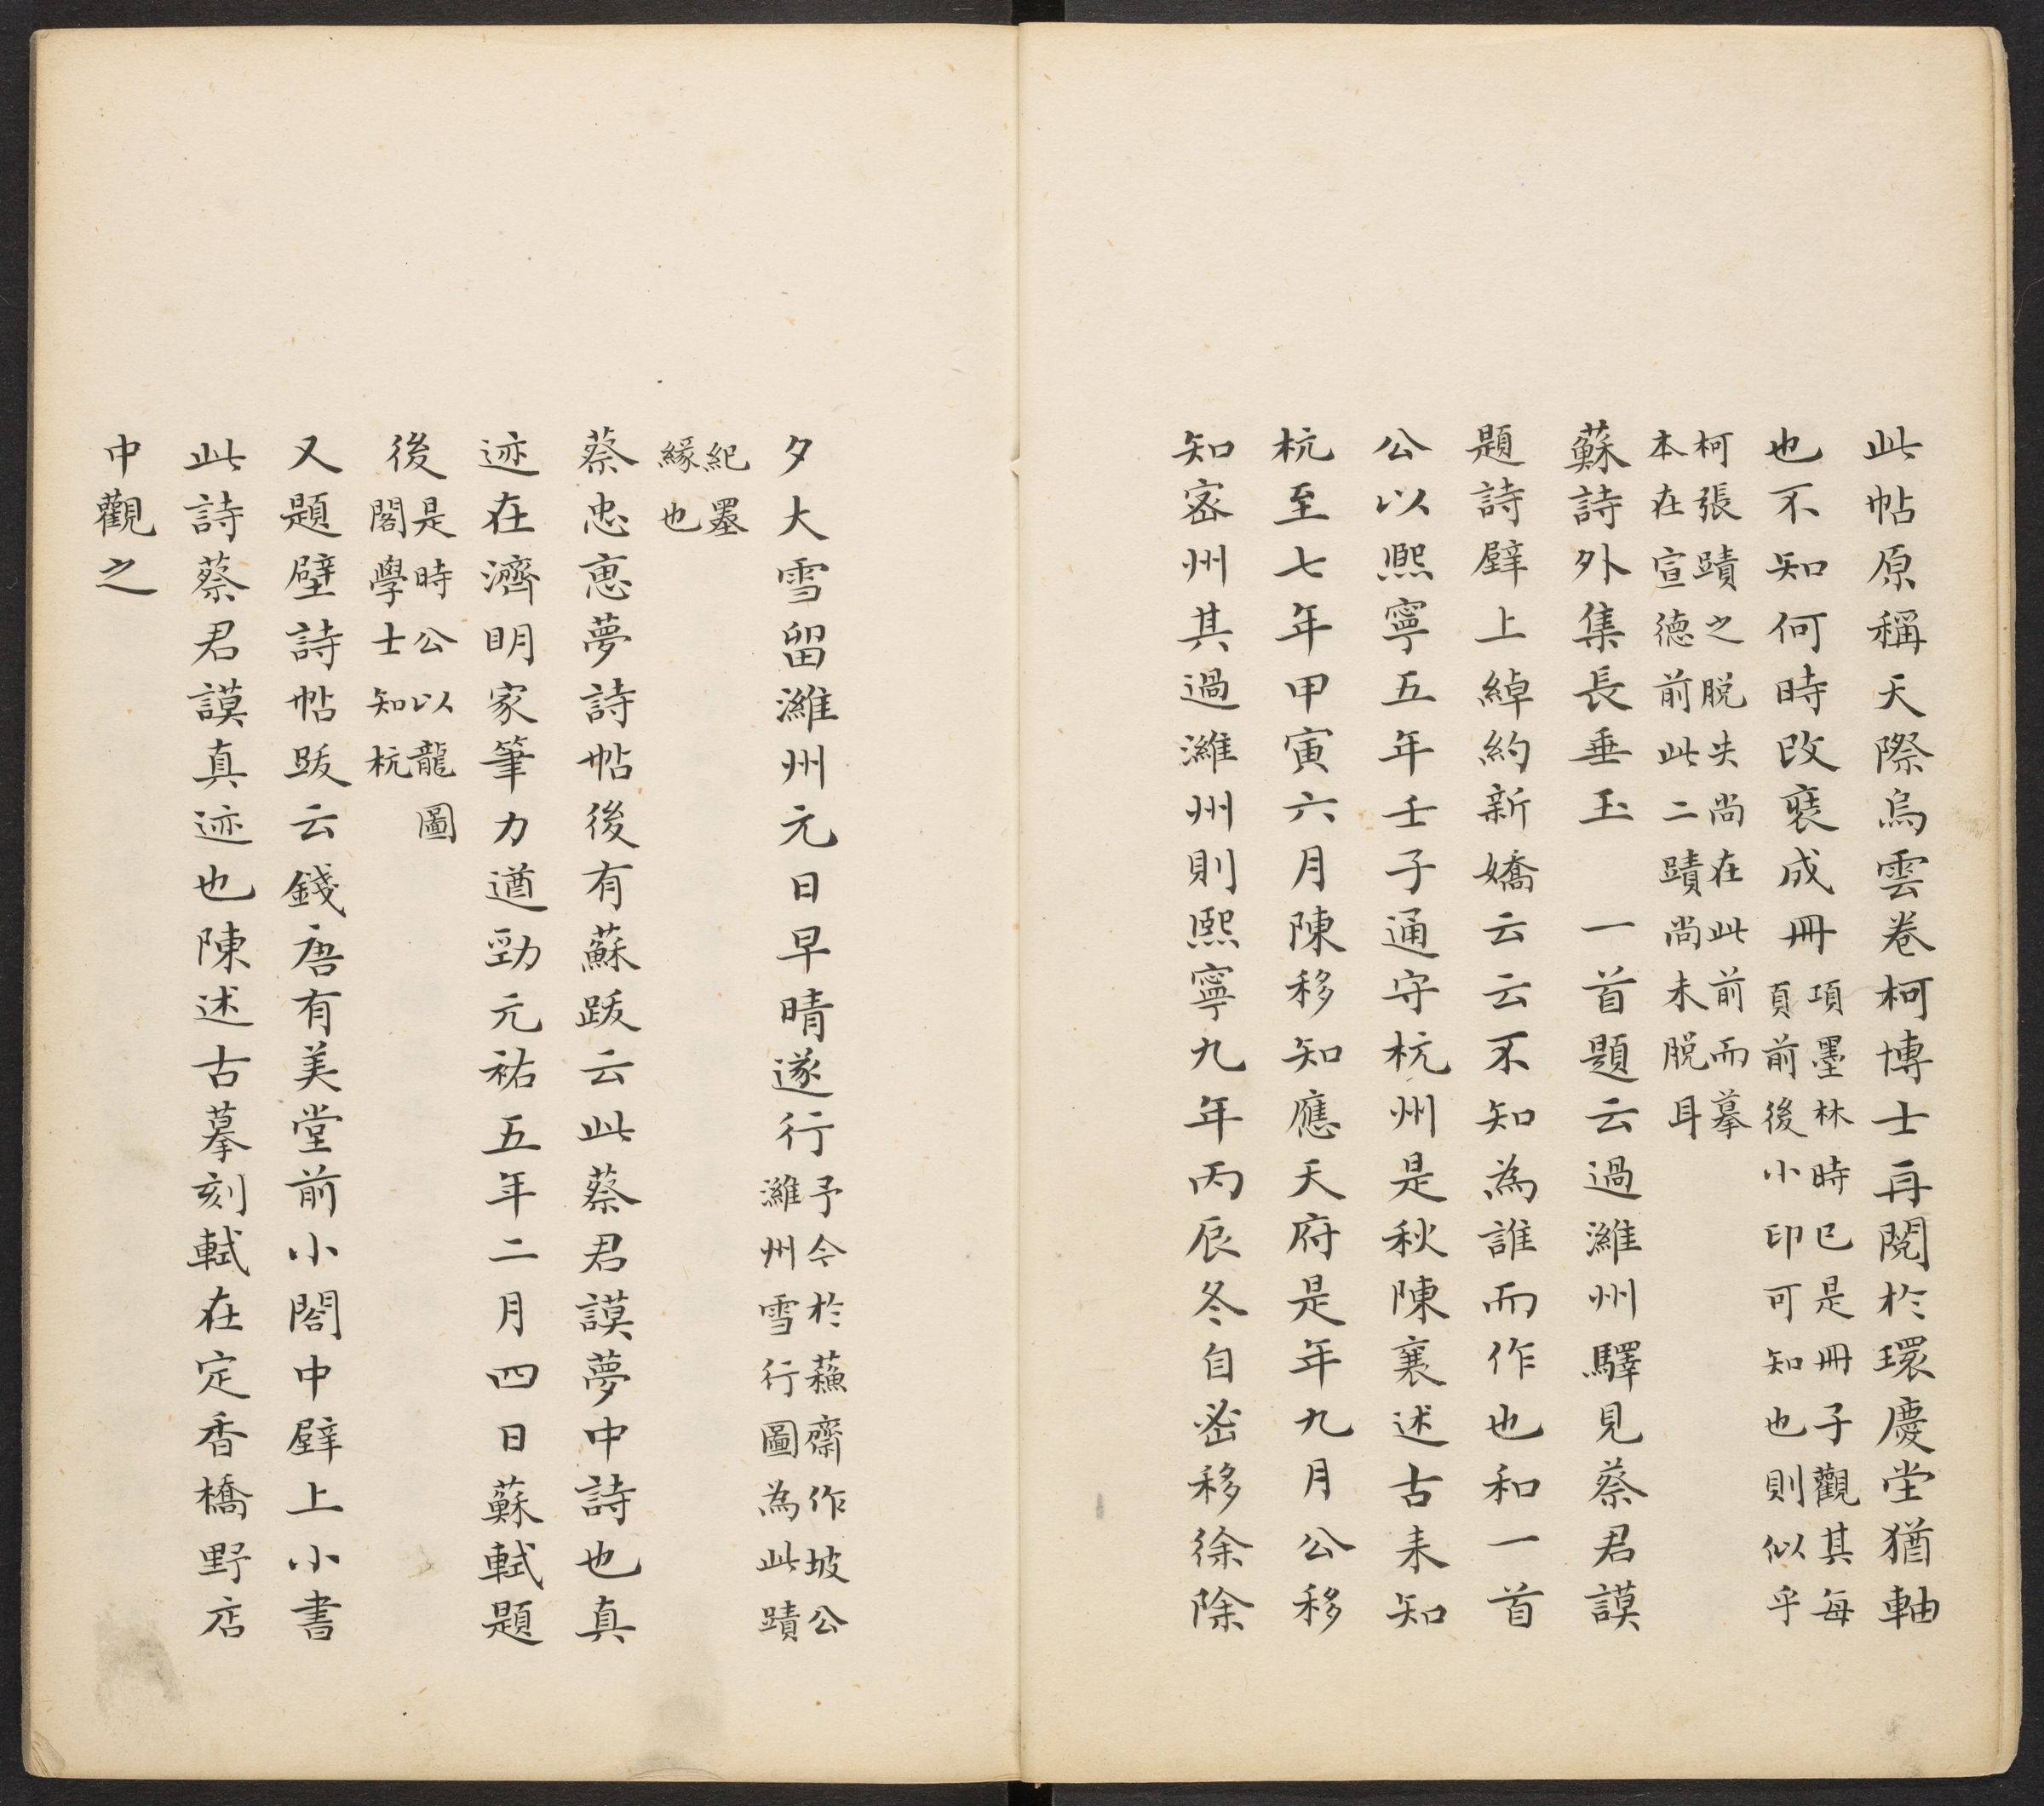 此帖原稱天際烏雲卷柯博士再閱於環慶堂猶軸
也不知何時改裝成冊項墨林時已是冊子觀其每
頁前後小印可知也則似乎
柯張蹟之脫失尚在此前而摹
本在宣德前此二蹟尚未脫耳
蘇詩外集長垂玉 一首題云過濰州驛見蔡君謨
題詩壁上綽約新嬌云云不知為誰而作也和一首
公以熙寧五年壬子通守杭州是秋陳襄述古來知
杭至七年甲寅六月陳移知應天府是年九月公移
知密州其過濰州則熙寧九年丙辰冬自密移徐除
夕大雪留濰州元日早晴遂行予今於蘓齋作坡公
濰州雪行圖為此蹟
紀墨
緣也
蔡忠惠夢詩帖後有蘇跋云此蔡君謨夢中詩也真
迹在濟明家筆力遒勁元祐五年二月四日蘇軾題
後是時公以龍圖
閣學士知杭
又題壁詩帖跋云錢唐有美堂前小閣中壁上小書
此詩蔡君謨真迹也陳述古摹刻軾在定香橋野店
中觀之